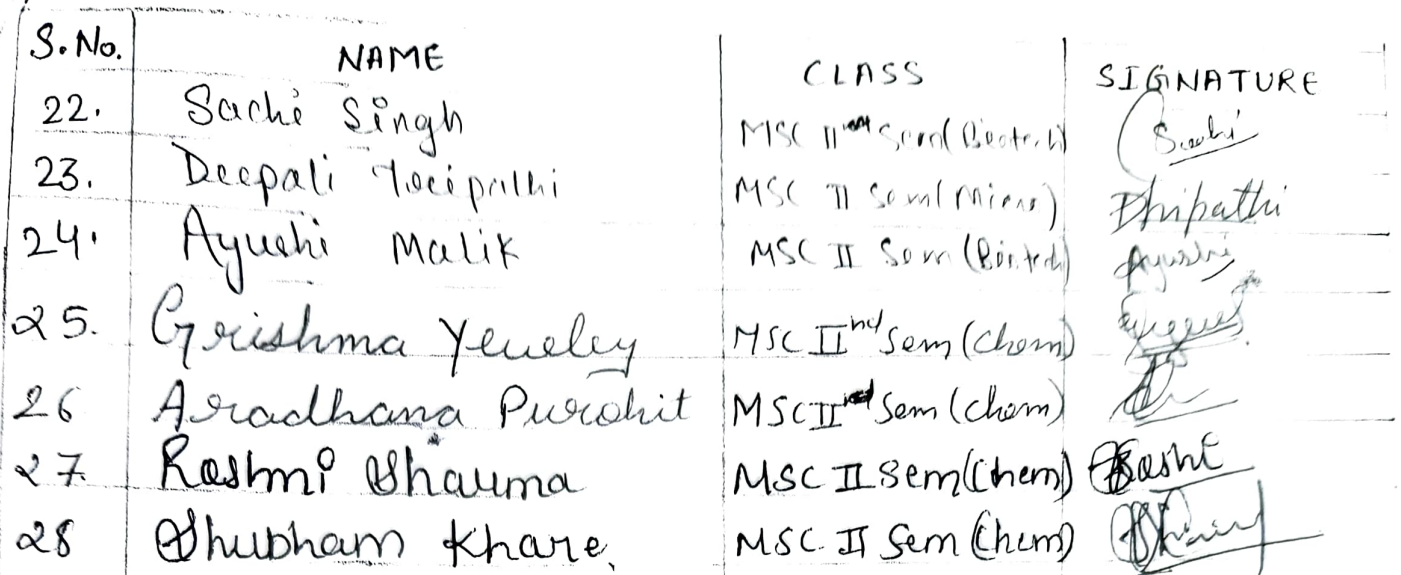 S.No. NAME CLASS SIGNATURE
22. Sachi Singh MSC II Sem (Biotech) Sachi
23. Deepali Tripathi MSC II Sem (Micro) Dtripathi
24. Ayushi Malik MSC II Sem (Biotech) Ayushi
25. Grishma Yeueley MSC IInd Sem (Chem)
26 Aradhana Purohit MSC IInd Sem (Chem)
27. Rashmi Sharma MSC II Sem (Chem) Rashi
28 Shubham Khare. MSC. II Sem (Chem)